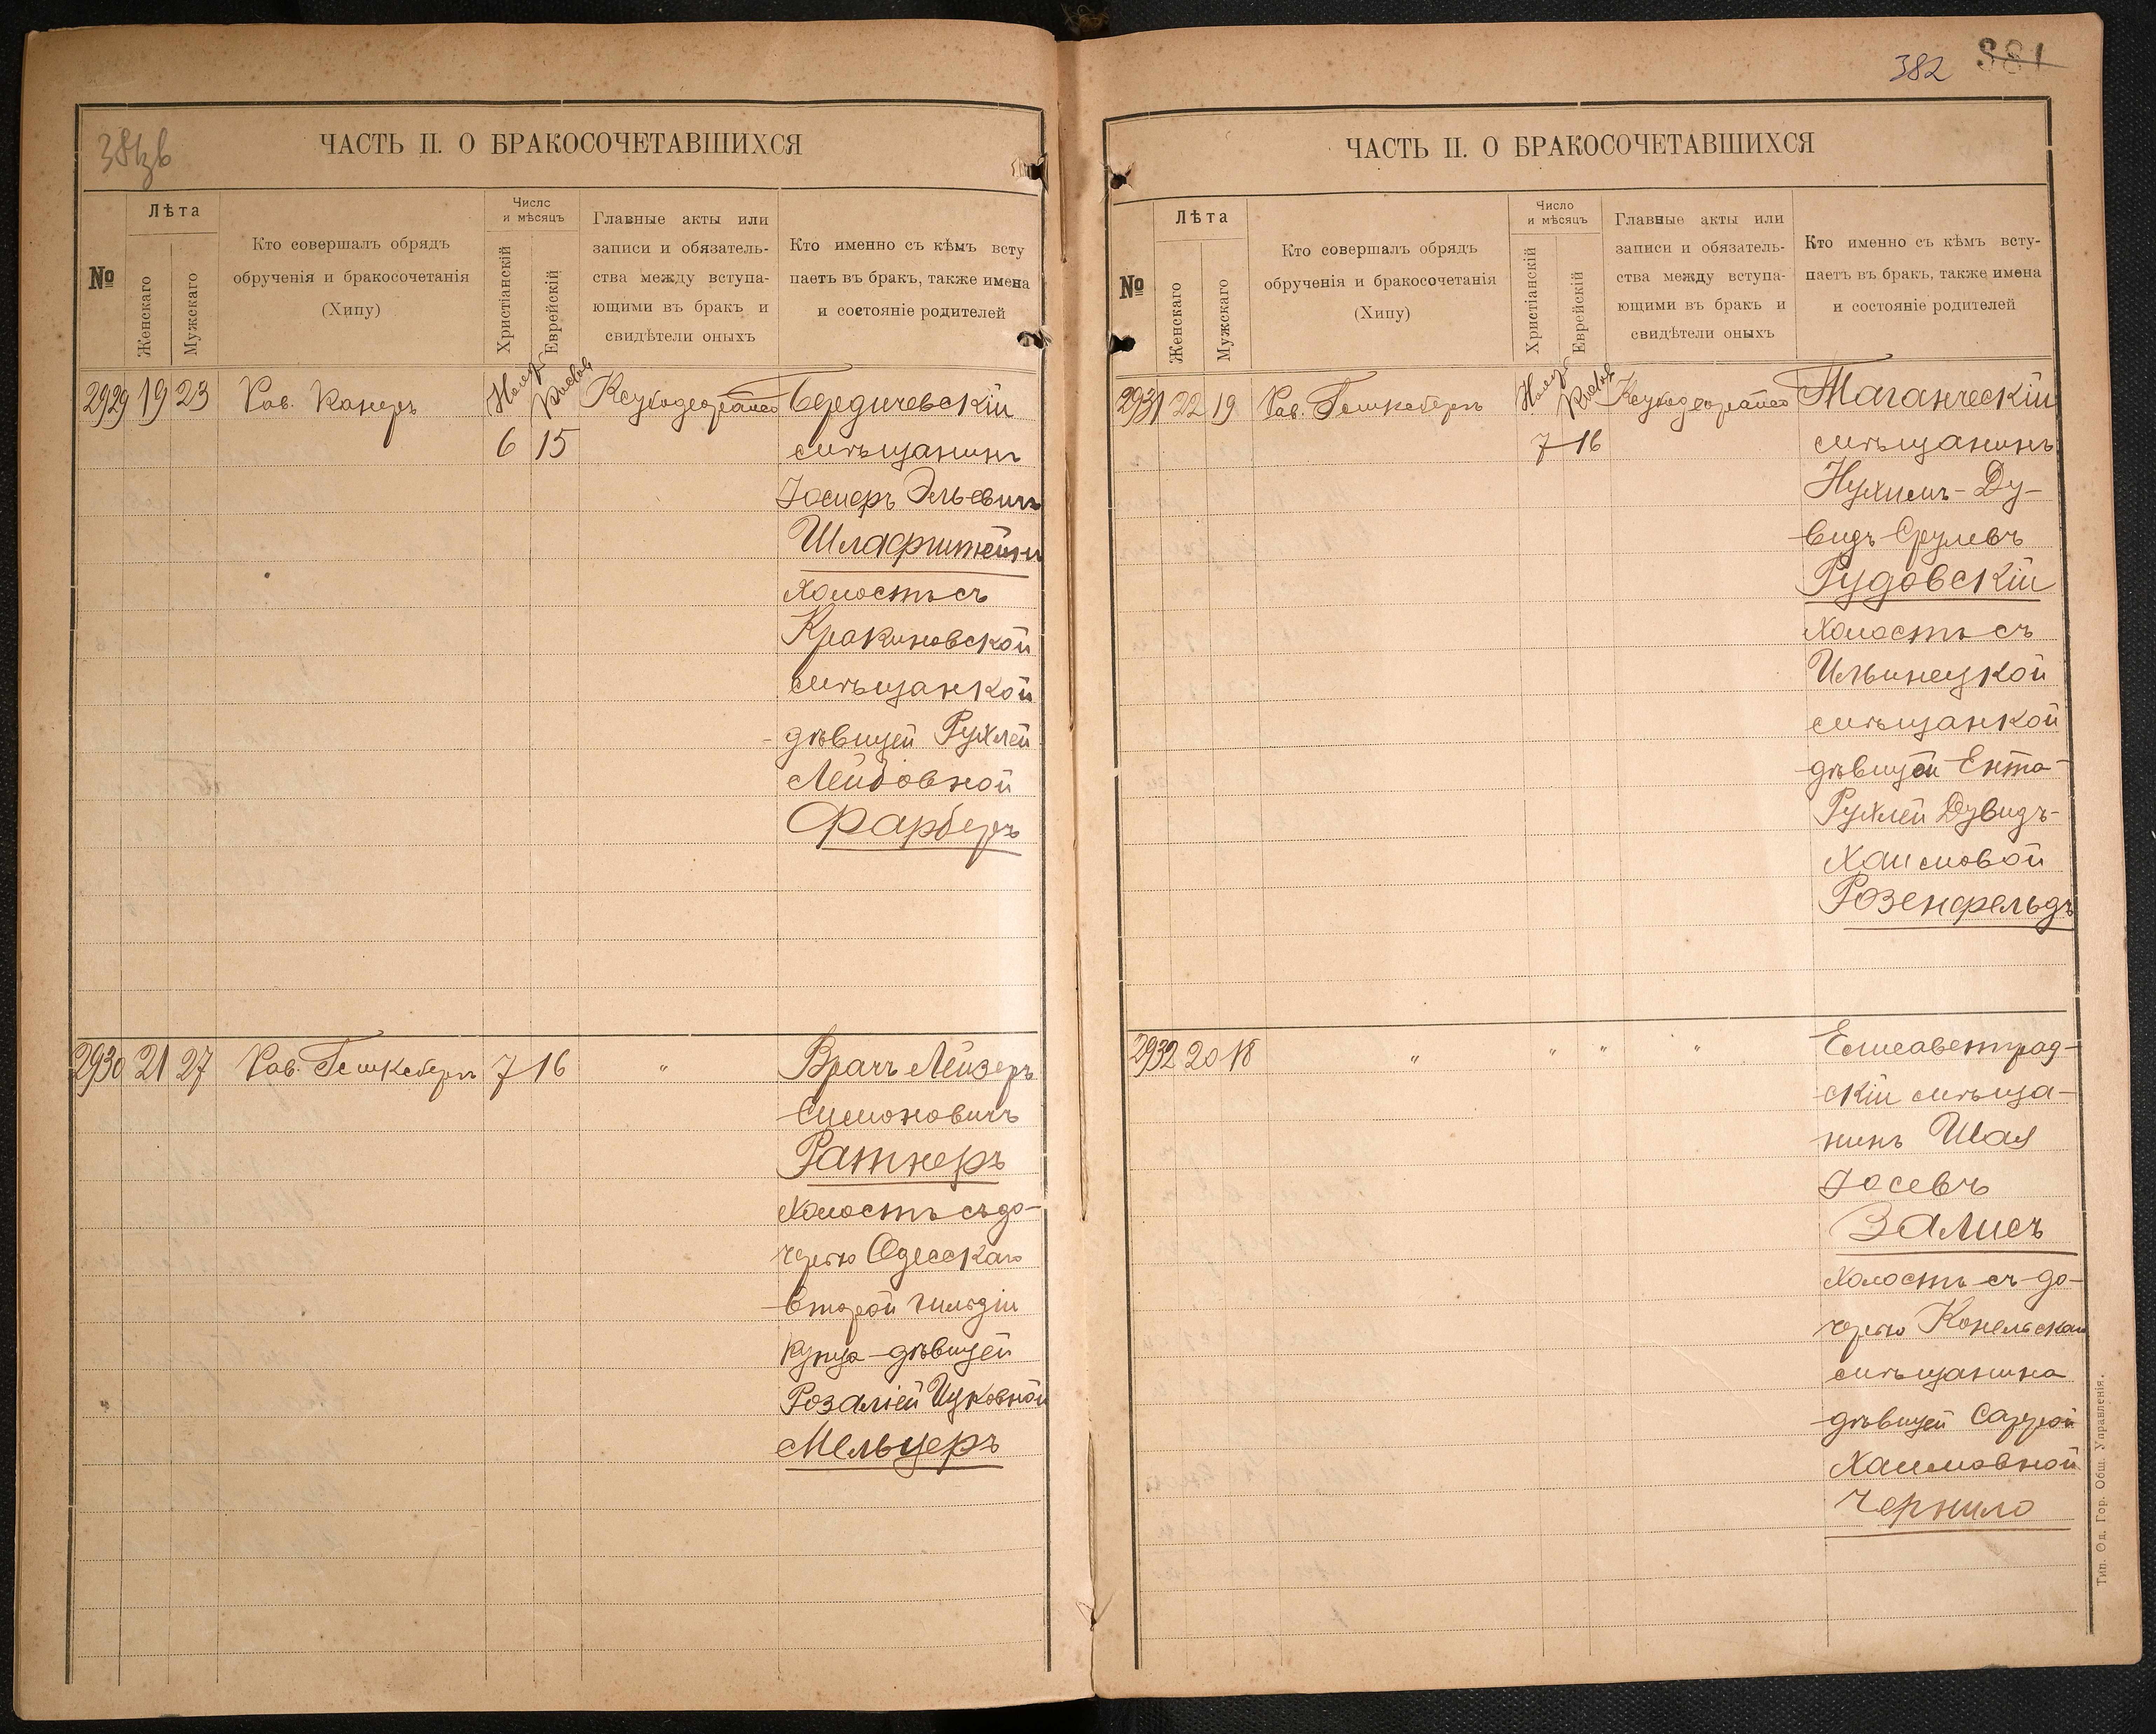 381 зв
ЧАСТЬ II. О БРАКОСОЧЕТАВШИХСЯ
№
Лѣта
Женскаго
Мужскаго
Кто совершалъ обрядъ
обрученія и бракосочетанія
(Хипу)
Число
и мѣсяцъ
Христіанскій
Еврейскій
Главные акты или
записи и обязатель-
ства между вступа-
ющими въ бракъ и
свидѣтели оныхъ
Кто именно съ кѣмъ всту
паетъ въ бракъ, также имена
и состояніе родителей
2929 19 23 Рав. Ноябр Кислев Бердичевскій
6 15 мѣщанинъ
Іосифъ Эльевичъ
Шлафштейнъ
холостъ съ
Кракиновской
мѣщанкой
дѣвицей Рухлей
Лейбовной
Фарберъ
2930 21 27 Рав. 7 16 " Врачъ Лейзеръ
Симоновичъ
Ратнеръ
холостъ съ до-
черью Одесскаго
второй гильдіи
купца дѣвицей
Розаліей Ицковной
Мельцеръ
382 381
ЧАСТЬ II. О БРАКОСОЧЕТАВШИХСЯ
№
Лѣта
Женскаго
Мужскаго
Кто совершалъ обрядъ
обрученія и бракосочетанія
(Хипу)
Число
и мѣсяцъ
Христіанскій
Еврейскій
Главные акты или
записи и обязатель-
ства между вступа-
ющими въ бракъ и
свидѣтели оныхъ
Кто именно съ кѣмъ всту-
паетъ въ бракъ, также имена
и состояніе родителей
2931 22 19 Рав. Ноябр Кислев Таганческій
7 16 мѣщанинъ
Нухимъ-Ду-
видъ Срулевъ
Рудовскій
холостъ съ
Ильинецкой
мѣщанкой
дѣвицей Ента-
Рухлей Дувидъ-
Хаимовой
Розенфельдъ
2932 20 18 " " " " Елисаветград-
скій мѣща-
нинъ Шая
Іосевъ
Залисъ
холостъ съ до-
черью Конельскаго
мѣщанина
дѣвицей Саррой
Хаимовной
Чернило
Тип. Од. Гор. Общ. Управленія.